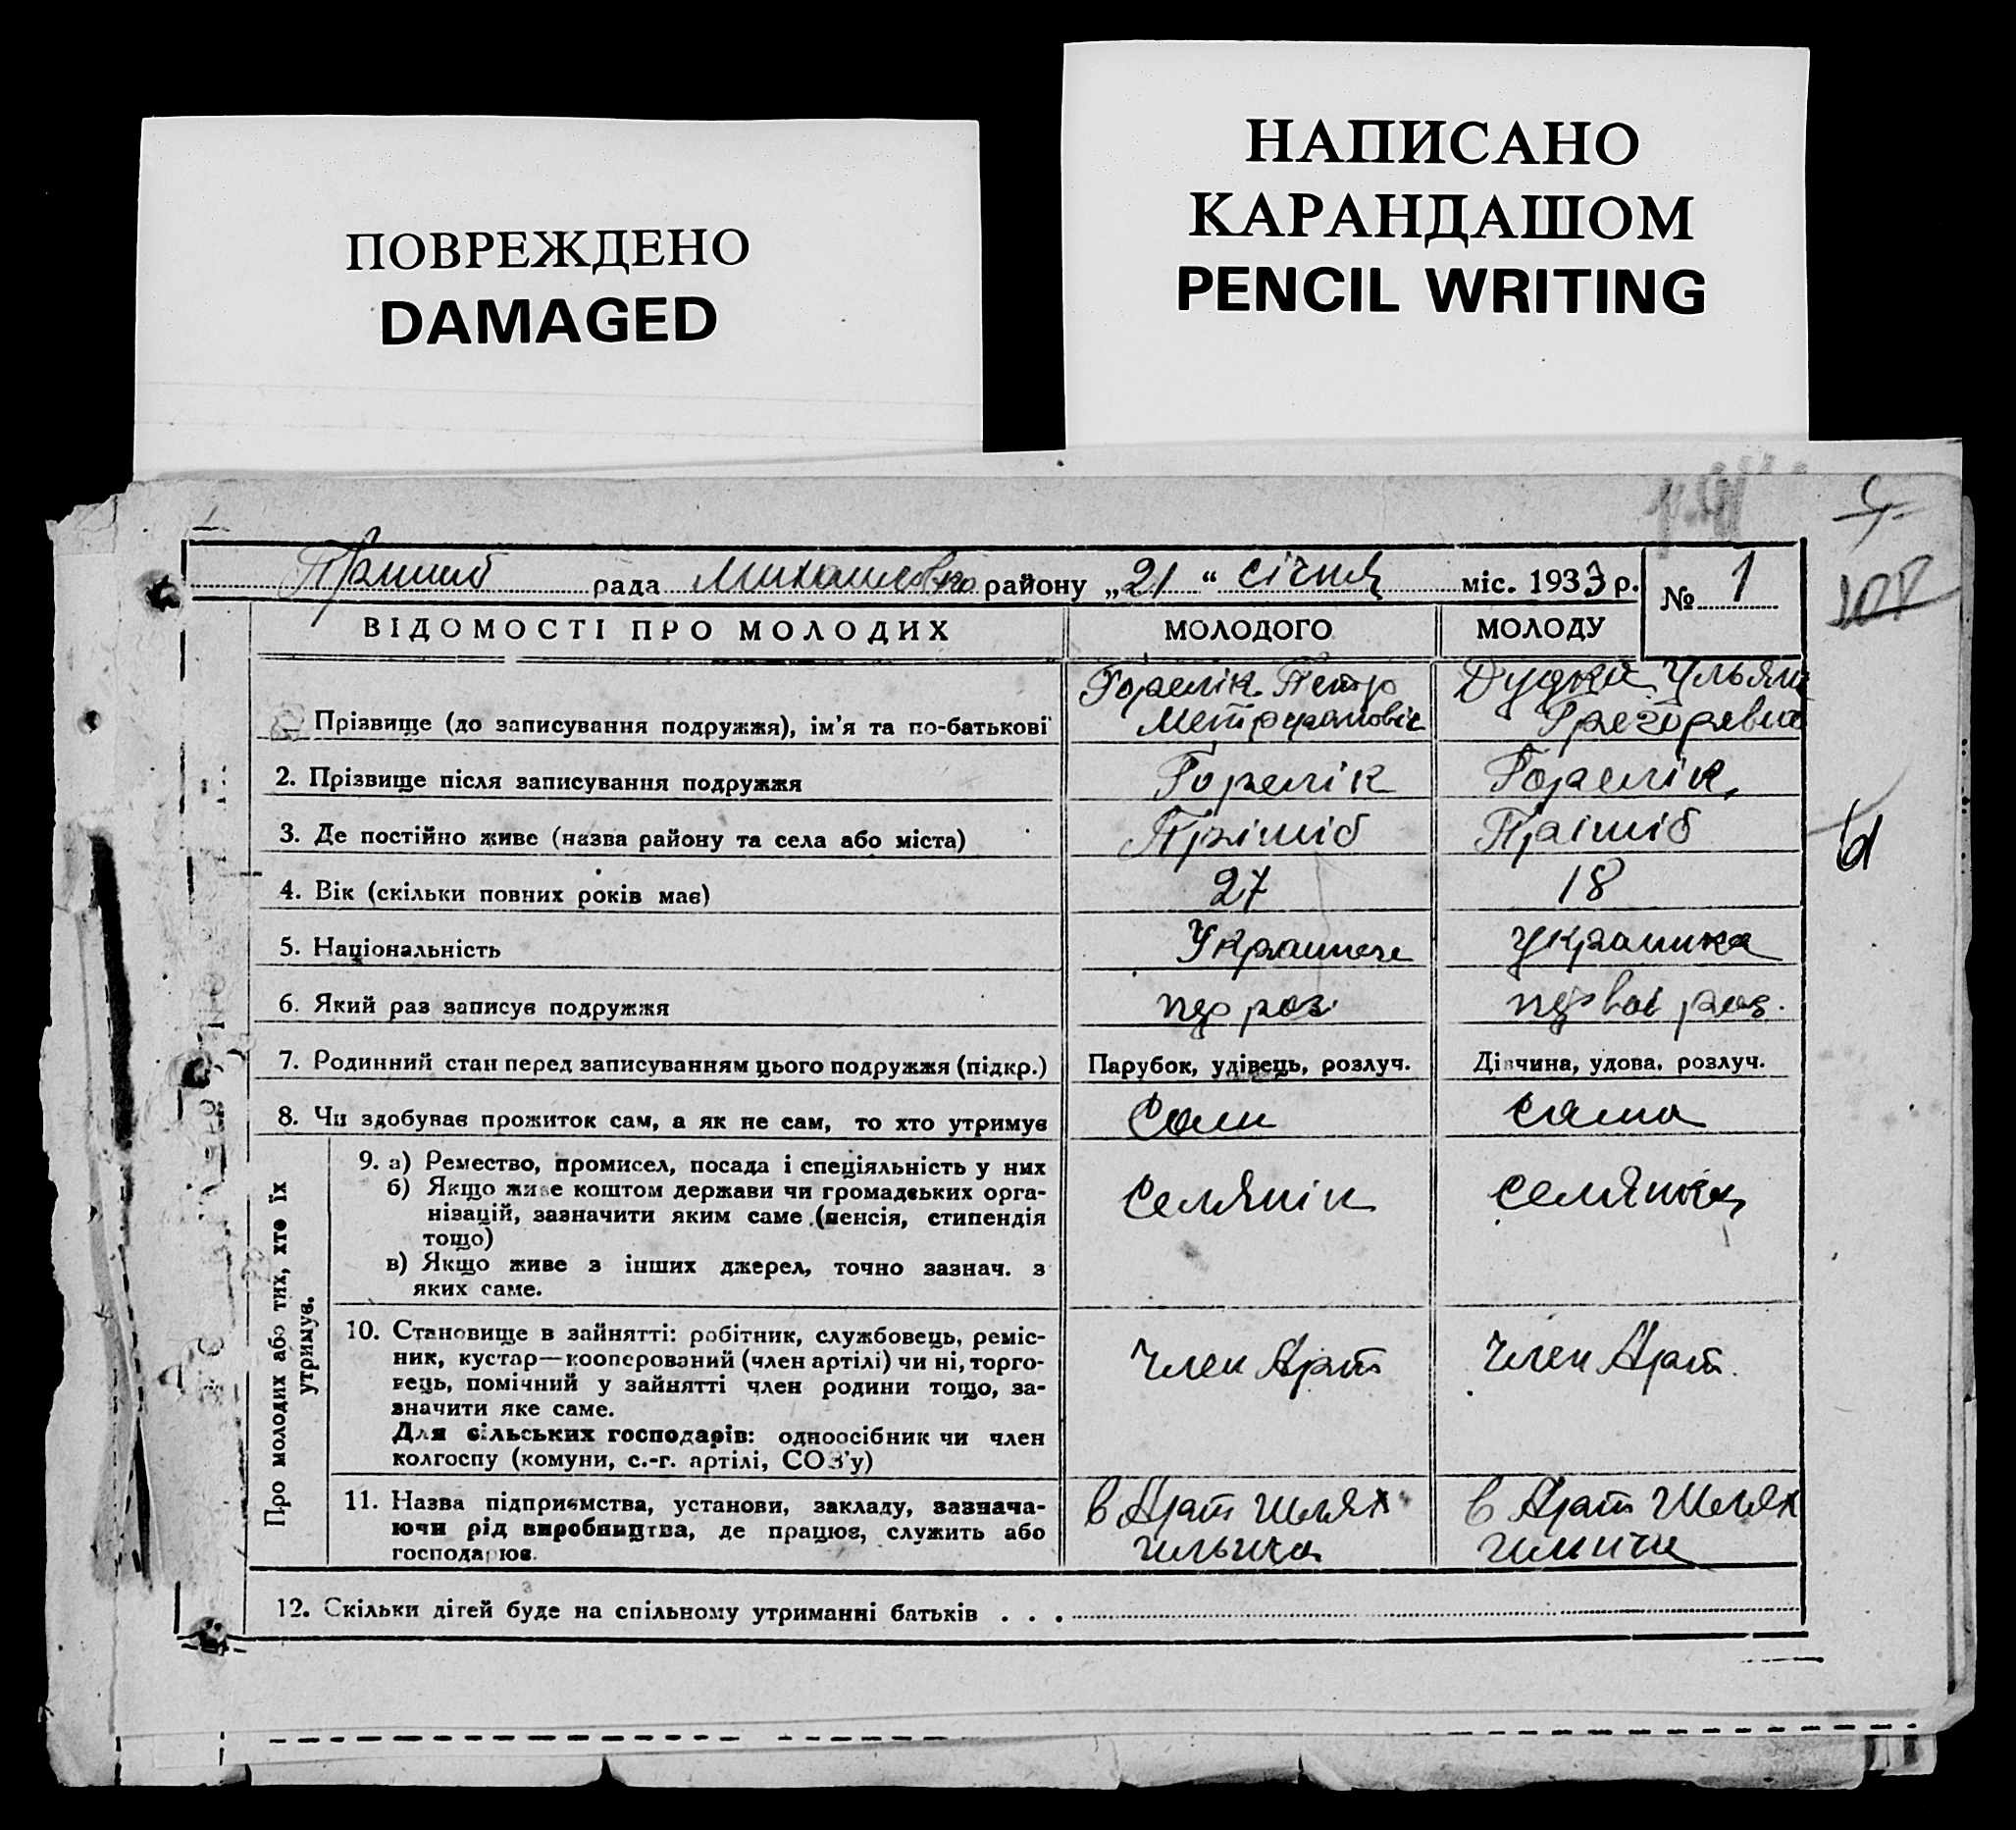 ПОВРЕЖДЕНО
DAMAGED
НАПИСАНО
КАРАНДАШОМ
PENCIL WRITING
Пришиб рада Михайловка району „21“ січня міс. 1933 р. № 1
ВІДОМОСТІ ПРО МОЛОДИХ МОЛОДОГО МОЛОДУ
Прізвище (до записування подружжя), ім'я та по-батькові
Горелік Петр
Метрофановіч
Дудка Ульяна
Грегоревна
2. Прізвище після записування подружжя Горелік Горелік
3. Де постійно живе (назва району та села або міста) Прішіб Прішіб
4. Вік (скільки повних років має) 27 18
5. Національність Украинец Украинка
6. Який раз записує подружжя пер раз первоі раз.
7. Родинний стан перед записуванням цього подружжя (підкр.) Парубок, удівець, розлуч. Дівчина, удова, розлуч.
8. Чи здобуває прожиток сам, а як не сам, то хто утримує Сам сама
Про молодих або тих, хто їх
утримує.
9. а) Ремество, промисел, посада і спеціяльність у них
б) Якщо живе коштом держави чи громадських орга-
нізацій, зазначити яким саме (пенсія, стипендія
тощо)
в) Якщо живе з інших джерел, точно зазнач. з
яких саме.
Селянін селянка
10. Становище в зайнятті: робітник, службовець, реміс-
ник, кустар—кооперований (член артілі) чи ні, торго-
вець, помічний у зайнятті член родини тощо, за-
значити яке саме.
Для сільських господарів: одноосібник чи член
колгоспу (комуни, с.-г. артілі, СОЗ'у)
член Арт член Арт.
11. Назва підприємства, установи, закладу, зазнача-
ючи рід виробництва, де працює, служить або
господарює.
в Арт Шлях
Ильича
в Арт Шлях
Илича
12. Скільки дітей буде на спільному утриманні батьків . . .